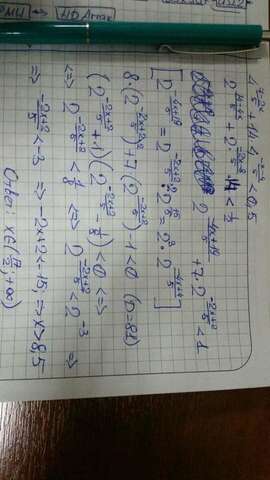 4^((7-2x)/5) + 14·4^((-x-4)/5) < 0,5
2^((-4x+14)/5) + 2^((-2x-8)/5)·14 < 1/2
2^((-4x+19)/5) + 7·2^((-2x+2)/5) < 1
[2^((-4x+19)/5) = 2^((-2x+2)/5·2)·2^(15/5) = 2^3·2^((-4x+4)/5)]
8·(2^((-2x+2)/5·2)) + 7(2^((-2x+2)/5)) - 1 < 0 (D=81)
(2^((-2x+2)/5) + 1)(2^((-2x+2)/5) - 1/8) < 0 <=>
<=> 2^((-2x+2)/5) < 1/8 <=> 2^((-2x+2)/5) < 2^(-3) =>
=> (-2x+2)/5 < -3 => -2x+2 < -15, => x > 8,5
Ответ: x∈(17/2; +∞)